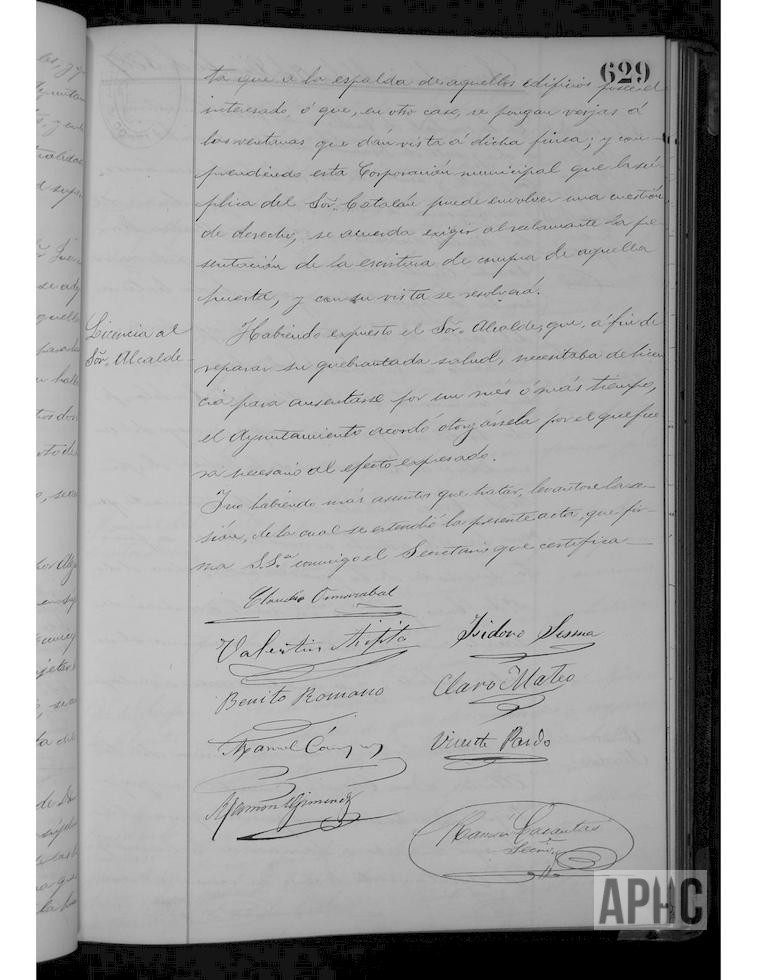 629
ta que a la espalda de aquellos edificios posee el
interesado, ó que, en otro caso, se pongan verjas á
las ventanas que dán vista á dicha finca; y com-
prendiendo esta Corporación municipal que la sú-
plica del Sor. Catalán puede envolver una cuestión
de derecho, se acuerda exigir al reclamante la pre-
sentación de la escritura de compra de aquella
puerta, y con su vista se resolverá.
Licencia al
Sor. Alcalde
Habiendo expuesto el Sor. Alcalde, que, á fin de
reparar su quebrantada salud, necesitaba de licen
cia para ausentarse por un més ó más tiempo,
el Ayuntamiento acordó otorgársela por el que fue
ra necesario al efecto expresado.
Y no habiendo más asuntos que tratar, levantose la se-
sión, de la cual se extendió la presente acta, que fir-
ma S.Sa. conmigo el Secretario que certifica
Claudio
Valentin
Isidoro Sesma
Benito Romano
Claro Mateo
Manuel
Vicente Pardo
Ramon Gimenez
Ramón
Secrio.
APHC